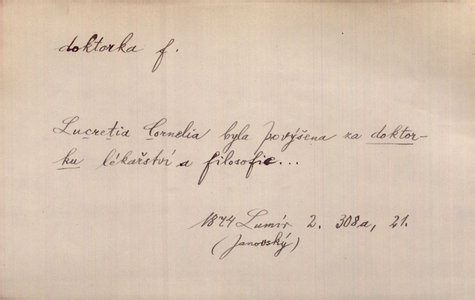 doktorka f.
Lucretia Cornelia byla povýšena za doktor-
ku lékařství a filosofie...
1874 Lumír 2. 308a, 21.
(Janovský)